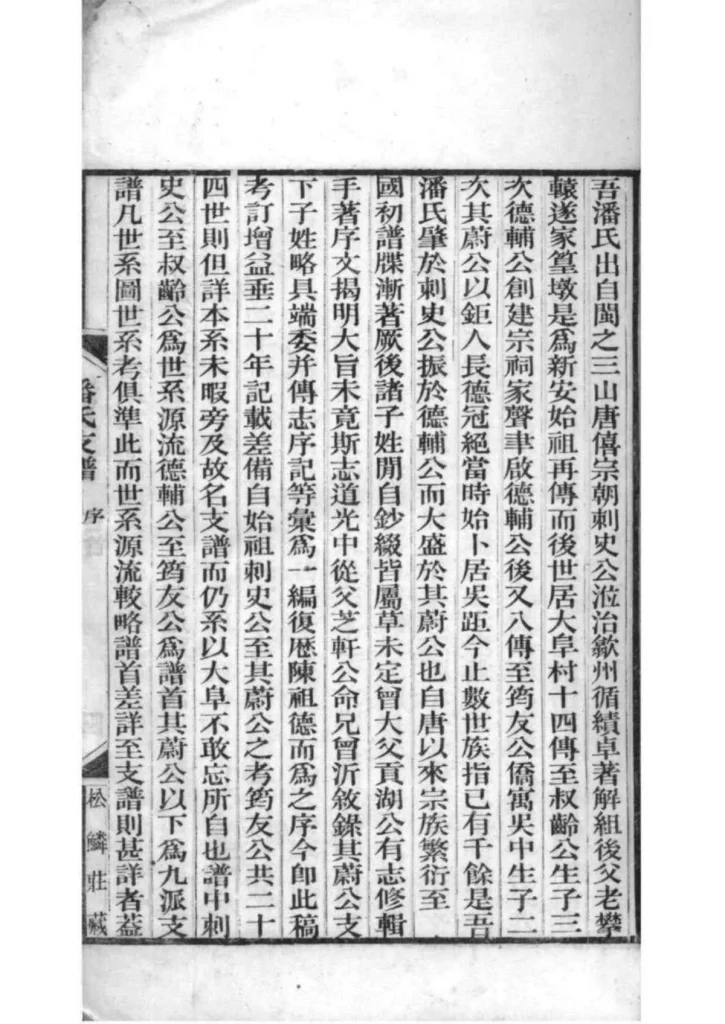 吾潘氏出自閩之三山唐僖宗朝刺史公涖治歙州循績卓著解組後父老攀
轅遂家篁墩是爲新安始祖再傳而後世居大阜村十四傳至叔齡公生子三
次德輔公創建宗祠家聲聿啟德輔公後又八傳至筠友公僑寓吳中生子二
次其蔚公以鉅人長德冠絕當時始卜居吳距今止數世族指已有千餘是吾
潘氏肇於刺史公振於德輔公而大盛於其蔚公也自唐以來宗族繁衍至
國初譜牒漸著厥後諸子姓閒自鈔綴皆屬草未定曾大父貢湖公有志修輯
手著序文揭明大旨未竟斯志道光中從父芝軒公命兄曾沂敘錄其蔚公支
下子姓略具端委并傳志序記等彙爲一編復歷陳祖德而爲之序今卽此稿
考訂增益垂二十年記載差備自始祖刺史公至其蔚公之考筠友公共二十
四世則但詳本系未暇旁及故名支譜而仍系以大阜不敢忘所自也譜中刺
史公至叔齡公爲世系源流德輔公至筠友公爲譜首其蔚公以下爲九派支
譜凡世系圖世系考俱準此而世系源流較略譜首差詳至支譜則甚詳者蓋
潘氏支譜 序
松鱗莊藏